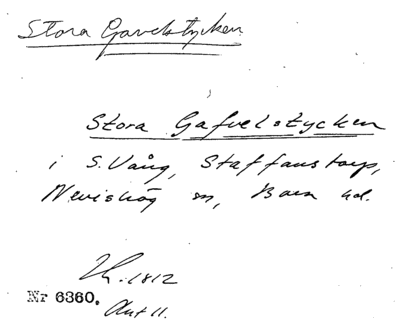 Stora Gavelstycken
Stora Gafvelstycken
i S. Vång, Staffanstorp,
Nevishög sn, Bara hd.
Sk. 1812
Nr 6360.
Akt 11.